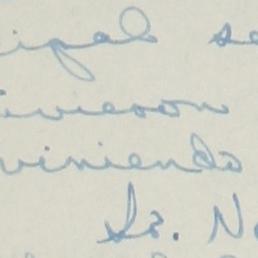 ipal se
vieron
viniendo
Sr. N